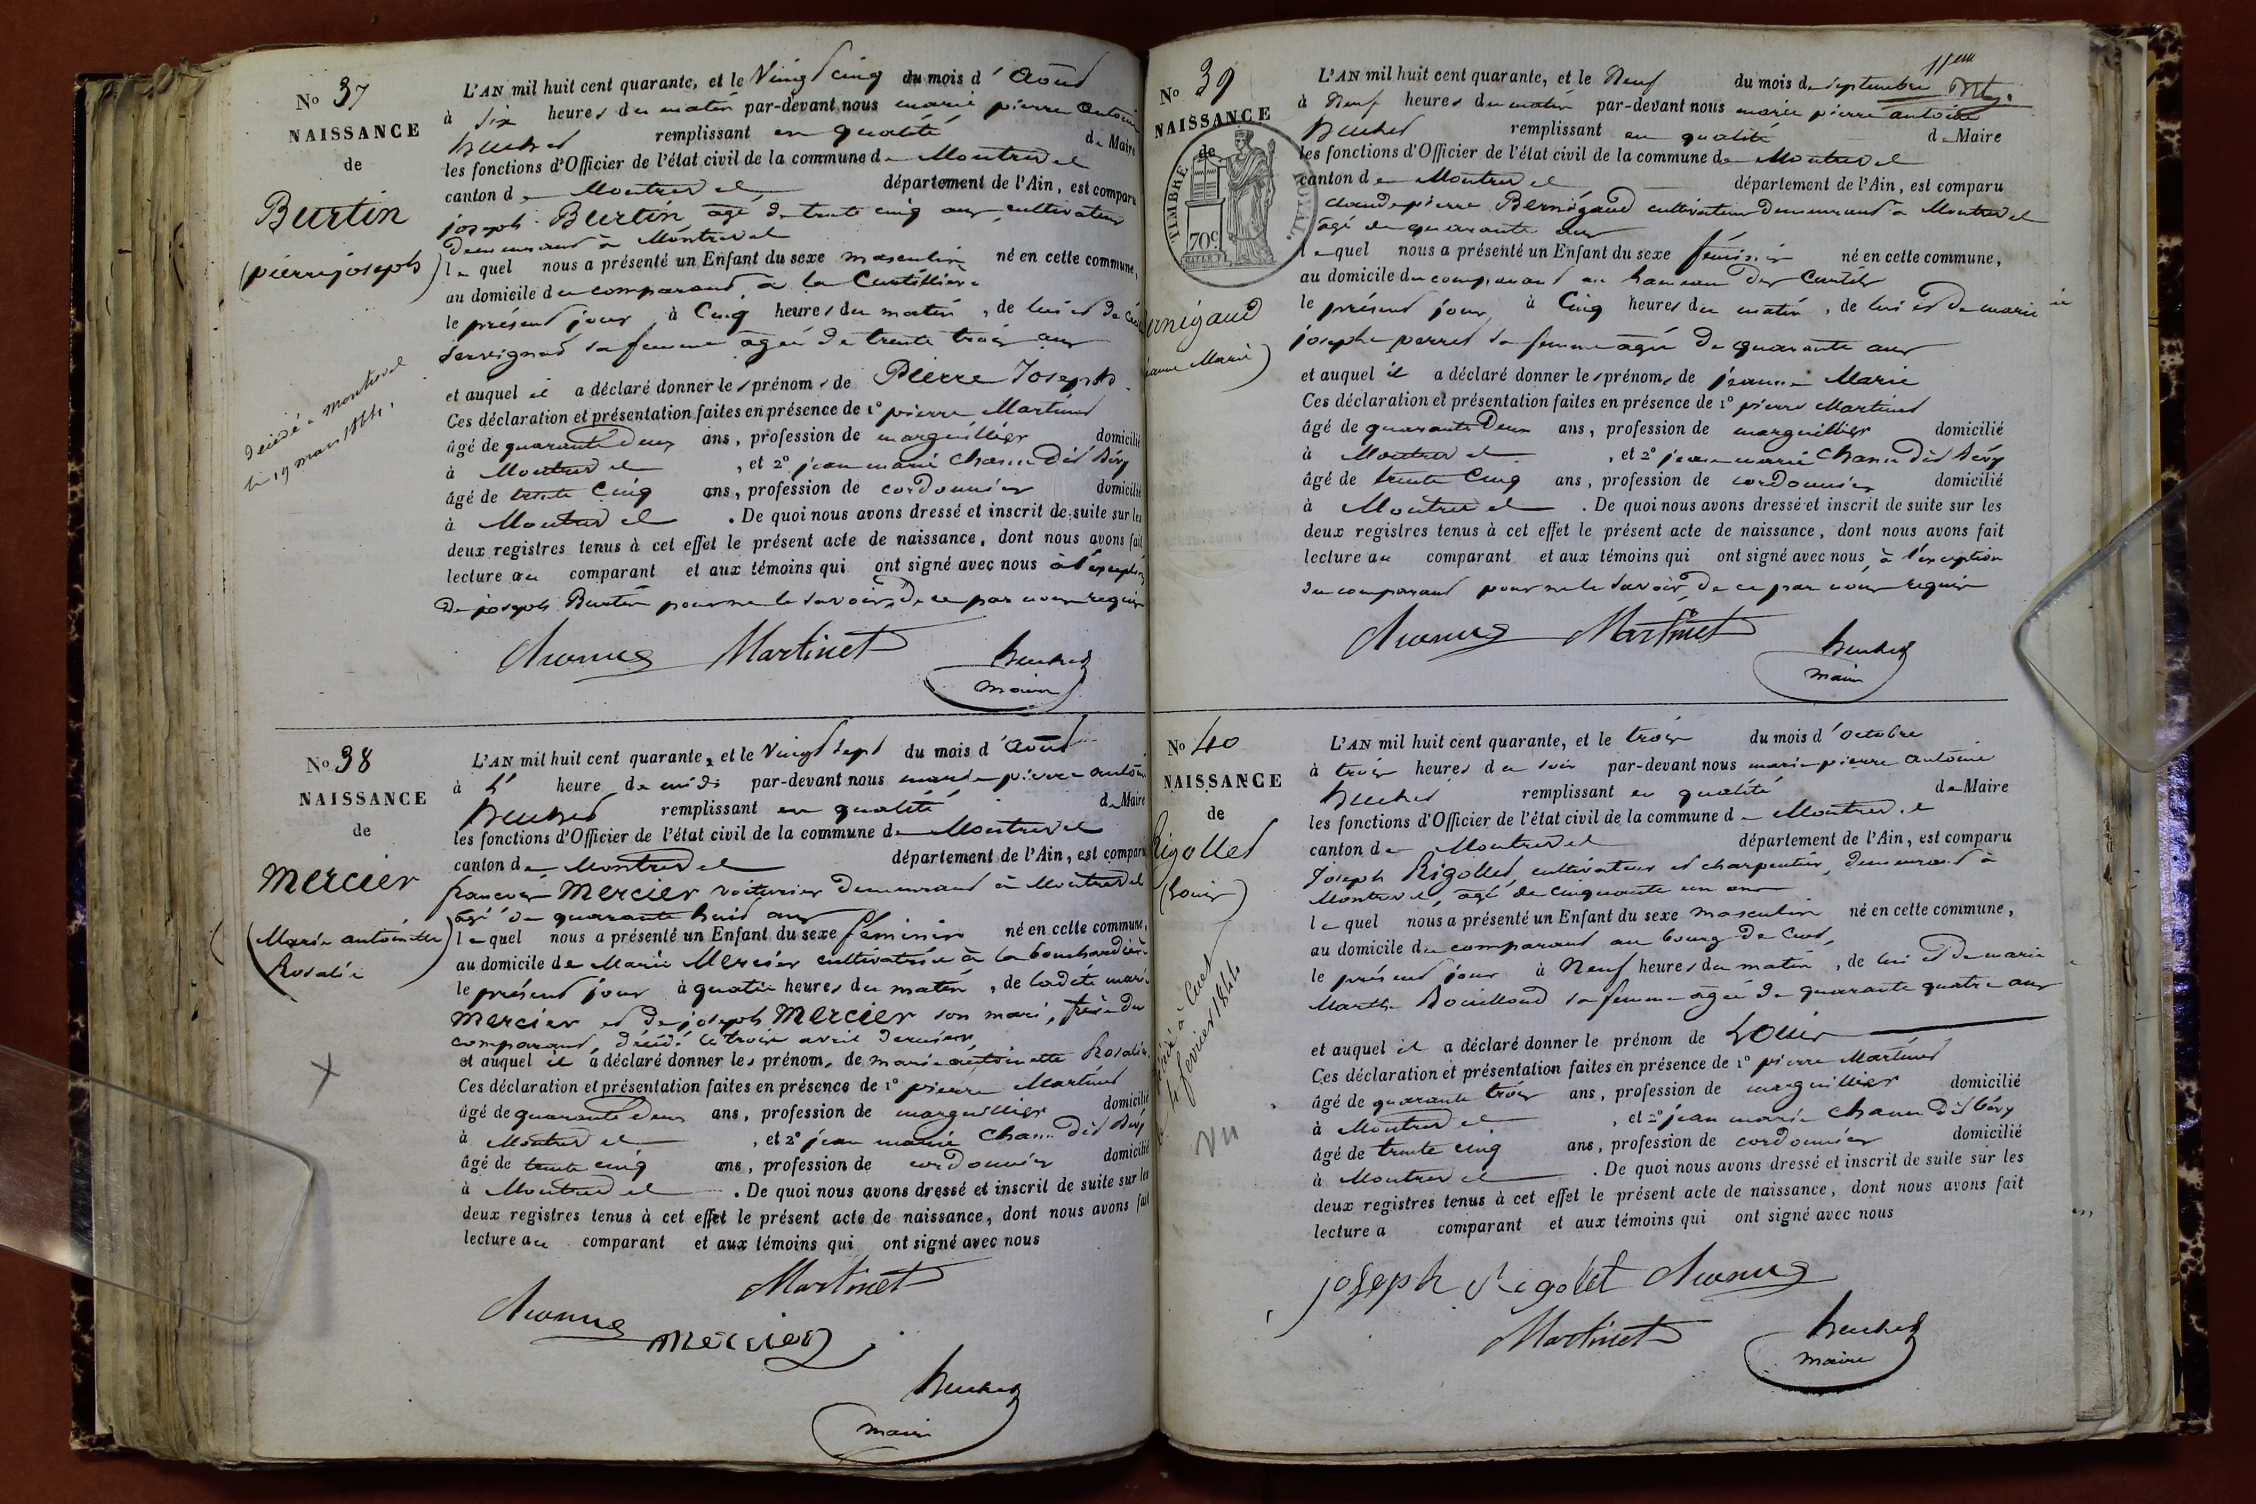 No 37
NAISSANCE
de
Burtin
(pierre joseph)
décédé à montrevel
le 19 mars 1864.
L'AN mil huit cent quarante, et le Vingt cinq du mois d'Août
à six heures du matin par-devant nous marie pierre antoine
remplissant en qualité de Maire
les fonctions d'Officier de l'état civil de la commune de Montrevel
canton de Montrevel département de l'Ain, est comparu
joseph Burtin agé de trente cinq ans, cultivateur
demeurant à Montrevel
lequel nous a présenté un Enfant du sexe masculin né en cette commune,
au domicile du comparant, à la
le présent jour à Cinq heures du matin, de lui et de
sa femme agée de trente trois ans
et auquel il a déclaré donner les prénoms de Pierre Joseph
Ces déclaration et présentation faites en présence de 1º pierre Martinet
âgé de quarante deux ans, profession de marguillier domicilié
à Montrevel, et 2º jean marie Chanu dit Bévy
âgé de trente Cinq ans, profession de cordonnier domicilié
à Montrevel. De quoi nous avons dressé et inscrit de suite sur les
deux registres tenus à cet effet le présent acte de naissance, dont nous avons fait
lecture au comparant et aux témoins qui ont signé avec nous à l'exception
de joseph Burtin pour ne le savoir, de ce par nous requis
Martinet
maire
No 38
NAISSANCE
de
Mercier
(Marie antoinette
Rosalie)
L'AN mil huit cent quarante, et le Vingt sept du mois d'Août
à heure de midi par-devant nous marie pierre antoine
remplissant en qualité de Maire
les fonctions d'Officier de l'état civil de la commune de Montrevel
canton de Montrevel département de l'Ain, est comparu
françois Mercier voiturier demeurant à Montrevel
agé de quarante huit ans
lequel nous a présenté un Enfant du sexe féminin né en cette commune,
au domicile de Marie Mercier cultivatrice à la bouchardière
le présent jour à quatre heures du matin, de ladite marie
Mercier et de joseph Mercier son mari, frère du
comparant, décédé le trois avril dernier
et auquel il a déclaré donner les prénoms de marie antoinette Rosalie.
Ces déclaration et présentation faites en présence de 1º pierre Martinet
âgé de quarante deux ans, profession de marguillier domicilié
à Montrevel, et 2º jean marie Chanu dit Bévy
âgé de trente cinq ans, profession de cordonnier domicilié
à Montrevel. De quoi nous avons dressé et inscrit de suite sur les
deux registres tenus à cet effet le présent acte de naissance, dont nous avons fait
lecture au comparant et aux témoins qui ont signé avec nous
Martinet
Mercier
maire
No 39
NAISSANCE
de
TIMBRE ROYAL
70c
(Jeanne Marie)
11em
L'AN mil huit cent quarante, et le Neuf du mois de septembre
à Neuf heures du matin par-devant nous marie pierre antoine
remplissant en qualité de Maire
les fonctions d'Officier de l'état civil de la commune de Montrevel
canton de Montrevel département de l'Ain, est comparu
claude pierre Bernigaud cultivateur demeurant à Montrevel
âgé de quarante ans
lequel nous a présenté un Enfant du sexe féminin né en cette commune,
au domicile du comparant au hameau des Curtils
le présent jour à Cinq heures du matin, de lui et de marie
josephe perret sa femme agée de quarante ans
et auquel il a déclaré donner les prénoms de jeanne Marie
Ces déclaration et présentation faites en présence de 1º pierre Martinet
âgé de quarante Deux ans, profession de marguillier domicilié
à Montrevel, et 2º jean marie Chanu dit Bévy
âgé de trente Cinq ans, profession de cordonnier domicilié
à Montrevel. De quoi nous avons dressé et inscrit de suite sur les
deux registres tenus à cet effet le présent acte de naissance, dont nous avons fait
lecture au comparant et aux témoins qui ont signé avec nous, à l'exception
du comparant pour ne le savoir, de ce par nous requis
Martinet
maire
No 40
NAISSANCE
de
Rigollet
(Louis)
à Cuet
février 1844
Vu
L'AN mil huit cent quarante, et le trois du mois d'octobre
à trois heures du soir par-devant nous marie pierre antoine
remplissant en qualité de Maire
les fonctions d'Officier de l'état civil de la commune de Montrevel
canton de Montrevel département de l'Ain, est comparu
Joseph Rigollet, cultivateur et charpentier, demeurant à
Montrevel, agé de cinquante un ans
lequel nous a présenté un Enfant du sexe masculin né en cette commune,
au domicile du comparant au bourg de Cuet,
le présent jour à Neuf heures du matin, de lui et de marie
Marthe Bouilloud sa femme agée de quarante quatre ans
et auquel il a déclaré donner le prénom de Louis
Ces déclaration et présentation faites en présence de 1º pierre Martinet
âgé de quarante trois ans, profession de marguillier domicilié
à Montrevel, et 2º jean marie Chanu dit Bévy
âgé de trente cinq ans, profession de cordonnier domicilié
à Montrevel. De quoi nous avons dressé et inscrit de suite sur les
deux registres tenus à cet effet le présent acte de naissance, dont nous avons fait
lecture a comparant et aux témoins qui ont signé avec nous
joseph Rigollet
Martinet
maire